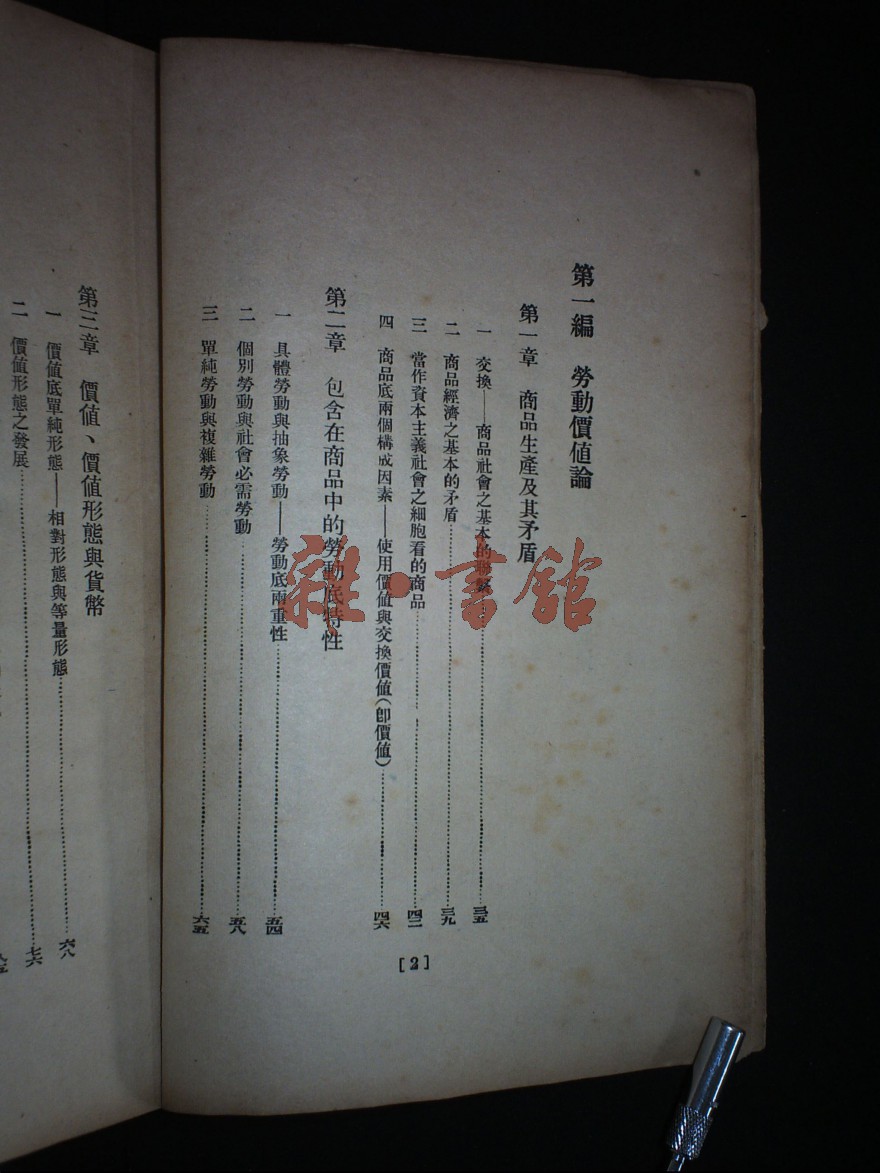 第一編 勞動價値論
第一章 商品生產及其矛盾
一 交換——商品社會之基本的聯繫……三五
二 商品經濟之基本的矛盾……三九
三 當作資本主義社會之細胞看的商品……四二
四 商品底兩個構成因素——使用價値與交換價値(卽價値)……四六
第二章 包含在商品中的勞動底特性
一 具體勞動與抽象勞動——勞動底兩重性……五四
二 個別勞動與社會必需勞動……五八
三 單純勞動與複雜勞動……六五
[2]
第三章 價値、價値形態與貨幣
一 價値底單純形態——相對形態與等量形態……六八
二 價値形態之發展……七六
雜·書館